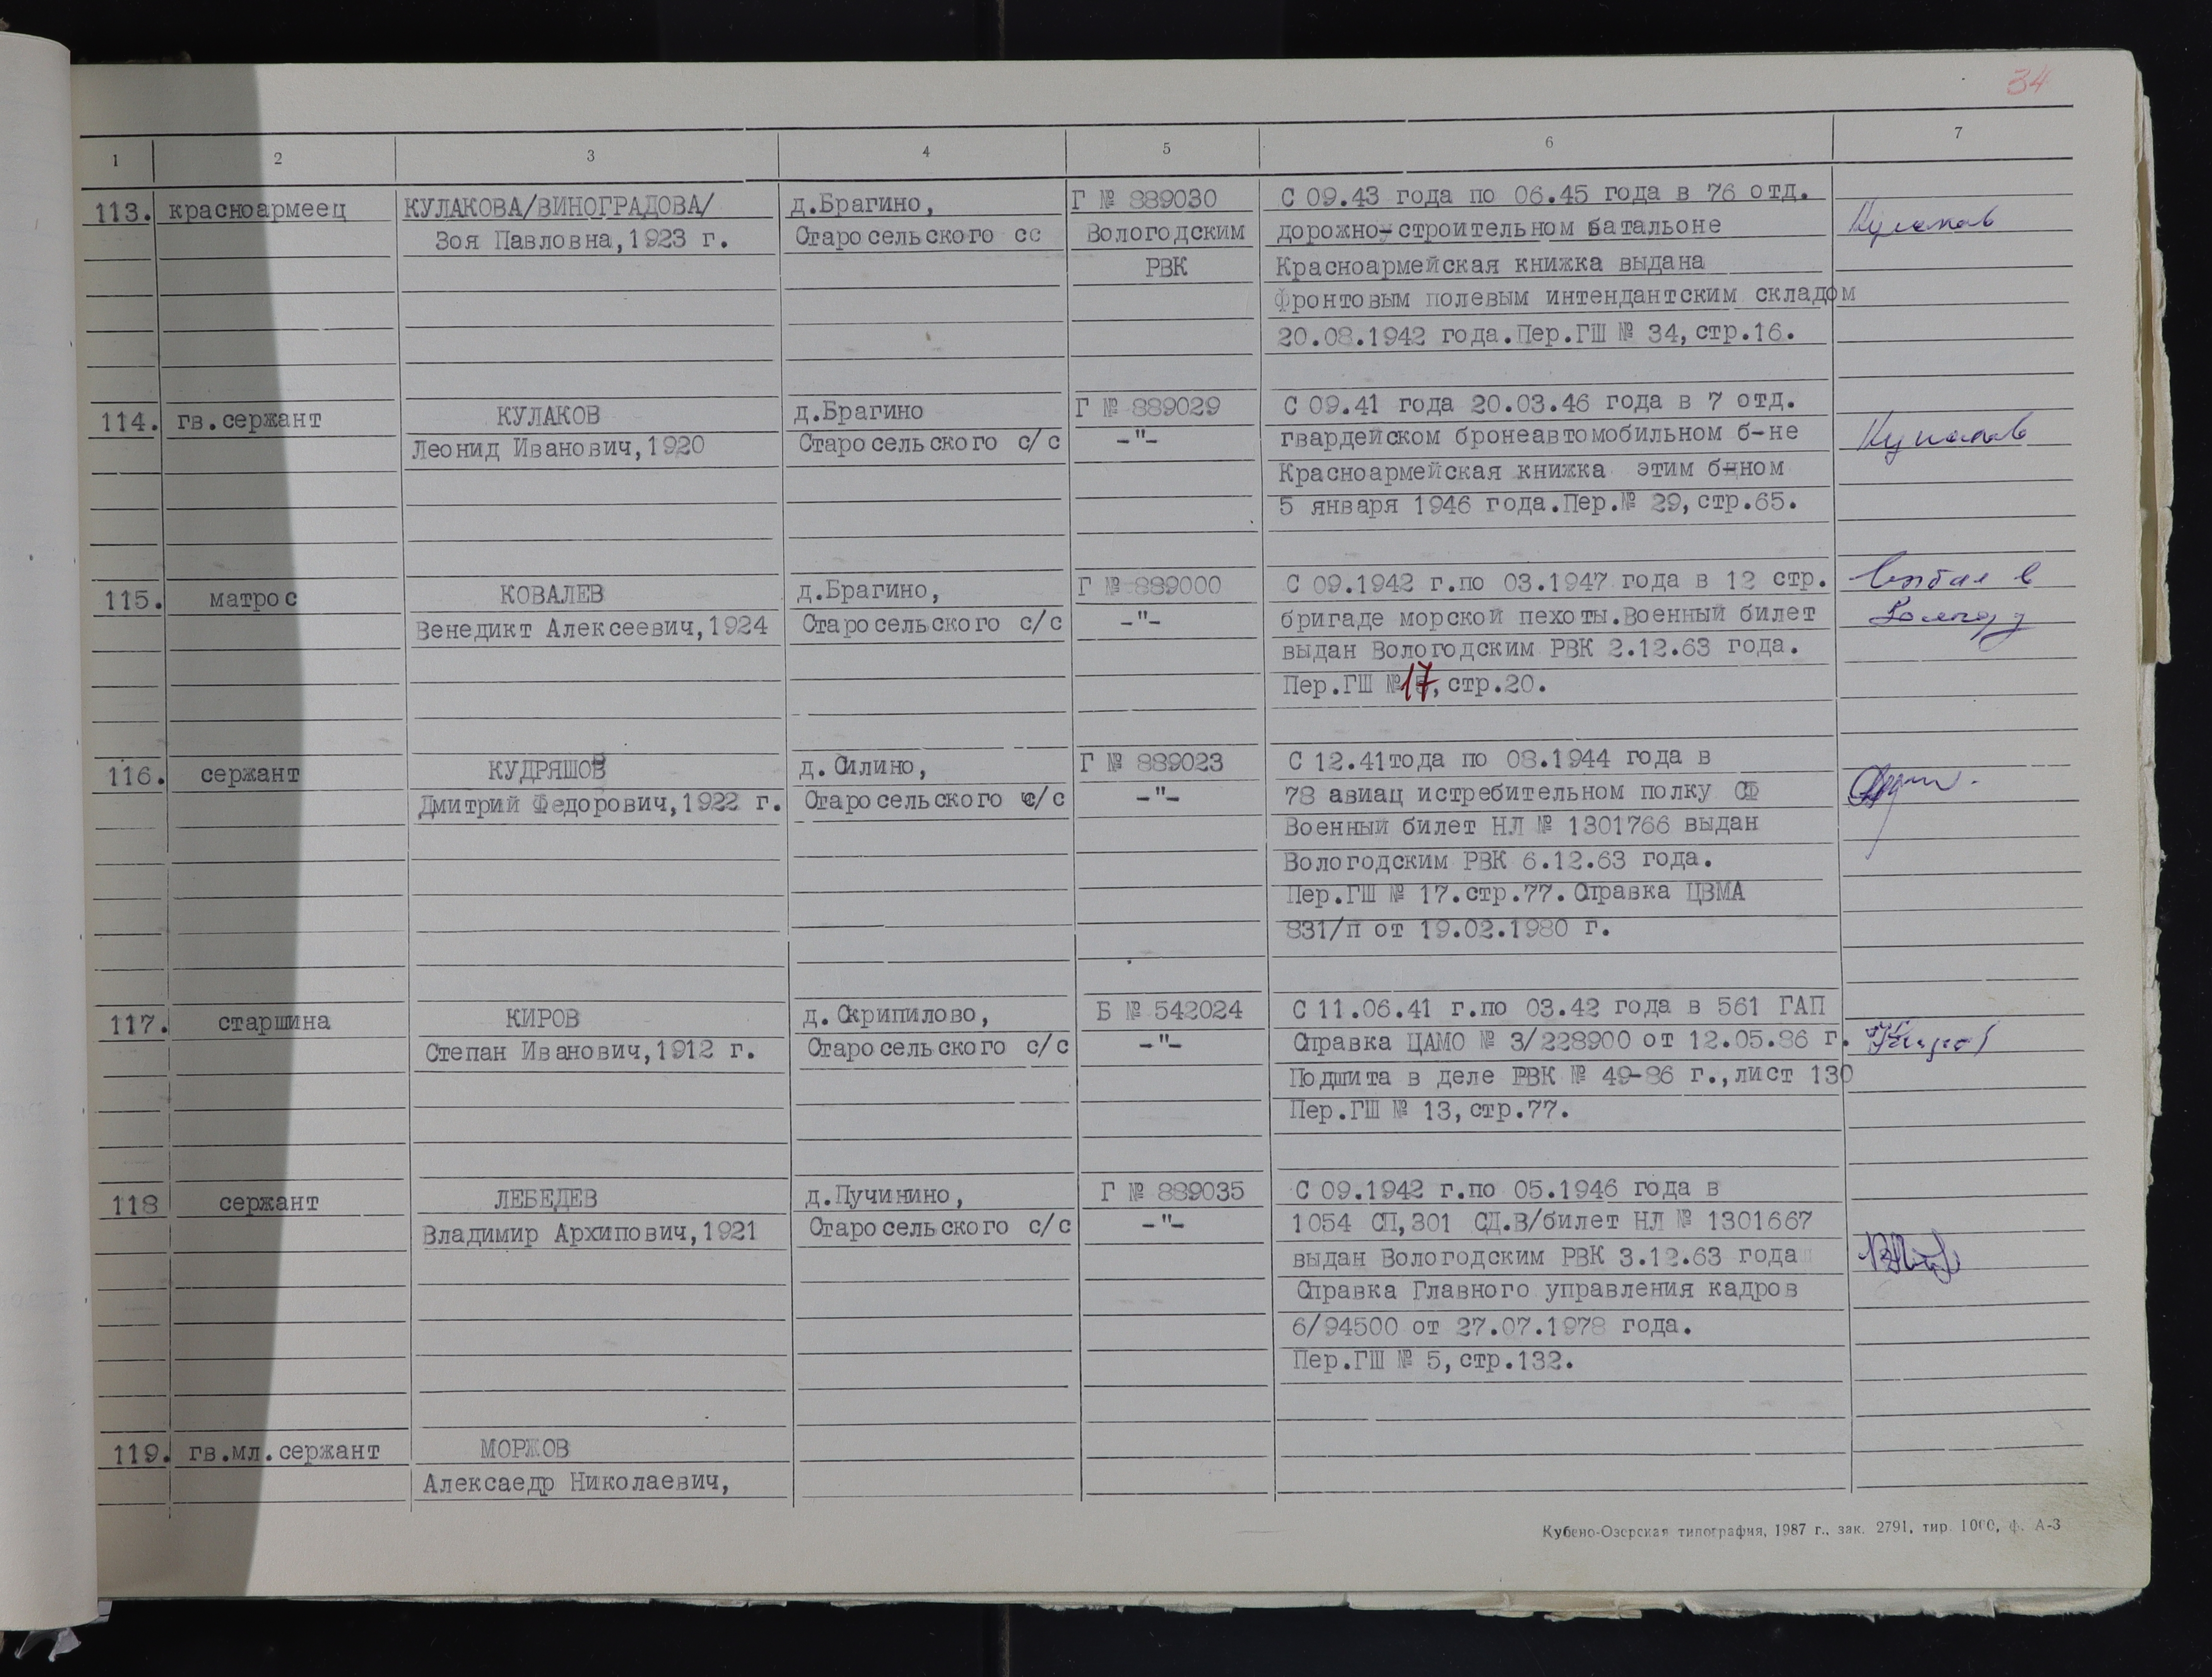 34
1 2 3 4 5 6 7
113. красноармеец КУЛАКОВА/ВИНОГРАДОВА/ д.Брагино, Г № 889030 С 09.43 года по 06.45 года в 76 отд.
Зоя Павловна,1923 г. Старосельского сс Вологодским дорожно-строительном батальоне Кулаков
РВК Красноармейская книжка выдана
фронтовым полевым интендантским складом
20.08.1942 года.Пер.ГШ № 34,стр.16.
114. гв.сержант КУЛАКОВ д.Брагино Г № 889029 С 09.41 года 20.03.46 года в 7 отд.
Леонид Иванович,1920 Старосельского с/с -"- гвардейском бронеавтомобильном б-не Кулаков
Красноармейская книжка этим б-ном
5 января 1946 года.Пер.№ 29,стр.65.
115. матрос КОВАЛЕВ д.Брагино, Г № 889000 С 09.1942 г.по 03.1947 года в 12 стр. в
Венедикт Алексеевич,1924 Старосельского с/с -"- бригаде морской пехоты.Военный билет Вологду
выдан Вологодским РВК 2.12.63 года.
Пер.ГШ №17,стр.20.
116. сержант КУДРЯШОВ д.Силино, Г № 889023 С 12.41тода по 08.1944 года в
Дмитрий Федорович,1922 г. Старосельского с/с -"- 78 авиац истребительном полку СФ
Военный билет НЛ № 1301766 выдан
Вологодским РВК 6.12.63 года.
Пер.ГШ № 17.стр.77.Справка ЦВМА
831/п от 19.02.1980 г.
117. старшина КИРОВ д.Скрипилово, Б № 542024 С 11.06.41 г.по 03.42 года в 561 ГАП
Степан Иванович,1912 г. Старосельского с/с -"- Справка ЦАМО № 3/228900 от 12.05.86 г. Киров
Подшита в деле РВК № 49-86 г.,лист 130
Пер.ГШ № 13,стр.77.
118 сержант ЛЕБЕДЕВ д.Пучинино, Г № 889035 С 09.1942 г.по 05.1946 года в
Владимир Архипович,1921 Старосельского с/с -"- 1054 СП,301 СД.В/билет НЛ № 1301667
выдан Вологодским РВК 3.12.63 года
Справка Главного управления кадров
6/94500 от 27.07.1978 года.
Пер.ГШ № 5,стр.132.
119. гв.мл.сержант МОРЖОВ
Алексаедр Николаевич,
Кубено-Озерская типография, 1987 г., зак. 2791, тир. 1000, ф. А-3